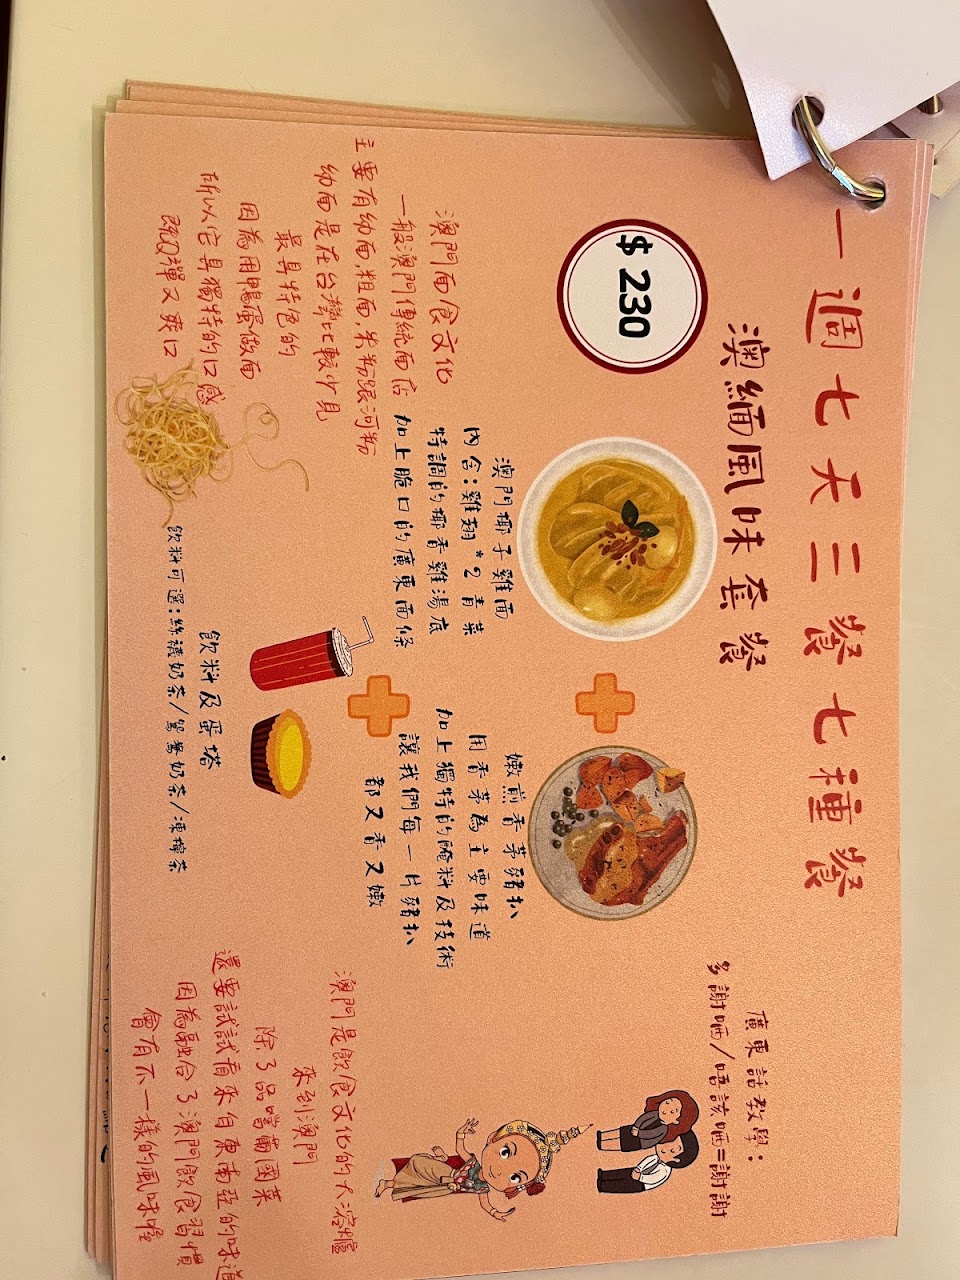 一週七天三餐七種餐
澳緬風味套餐
$230
廣東話教學：
多謝晒/唔該晒=謝謝
澳門椰子雞面
內含：雞翅*2 青菜
特調的椰香雞湯底
加上脆口的廣東面條
嫩煎香茅豬扒
用香茅為主要味道
加上獨特的醃料及技術
讓我們每一片豬扒
都又香又嫩
澳門面食文化
一般澳門傳統面店
主要有幼面，粗面，米粉跟河粉
幼面是在台灣比較少見
最具特色的
因為用鴨蛋做面
所以它具獨特的口感
既Q彈又爽口
飲料及蛋塔
飲料可選：絲襪奶茶/鴛鴦奶茶/凍檸茶
澳門是飲食文化的大溶爐
來到澳門
除了品嚐葡國菜
還要試試看來自東南亞的味道
因為融合了澳門飲食習慣
會有不一樣的風味喔